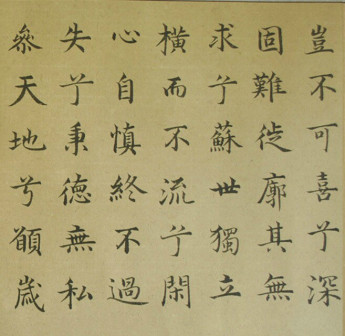 豈不可喜兮深
固難徙廓其無
求兮蘇世獨立
橫而不流兮閑
心自慎終不過
失兮秉德無私
參天地兮願歲